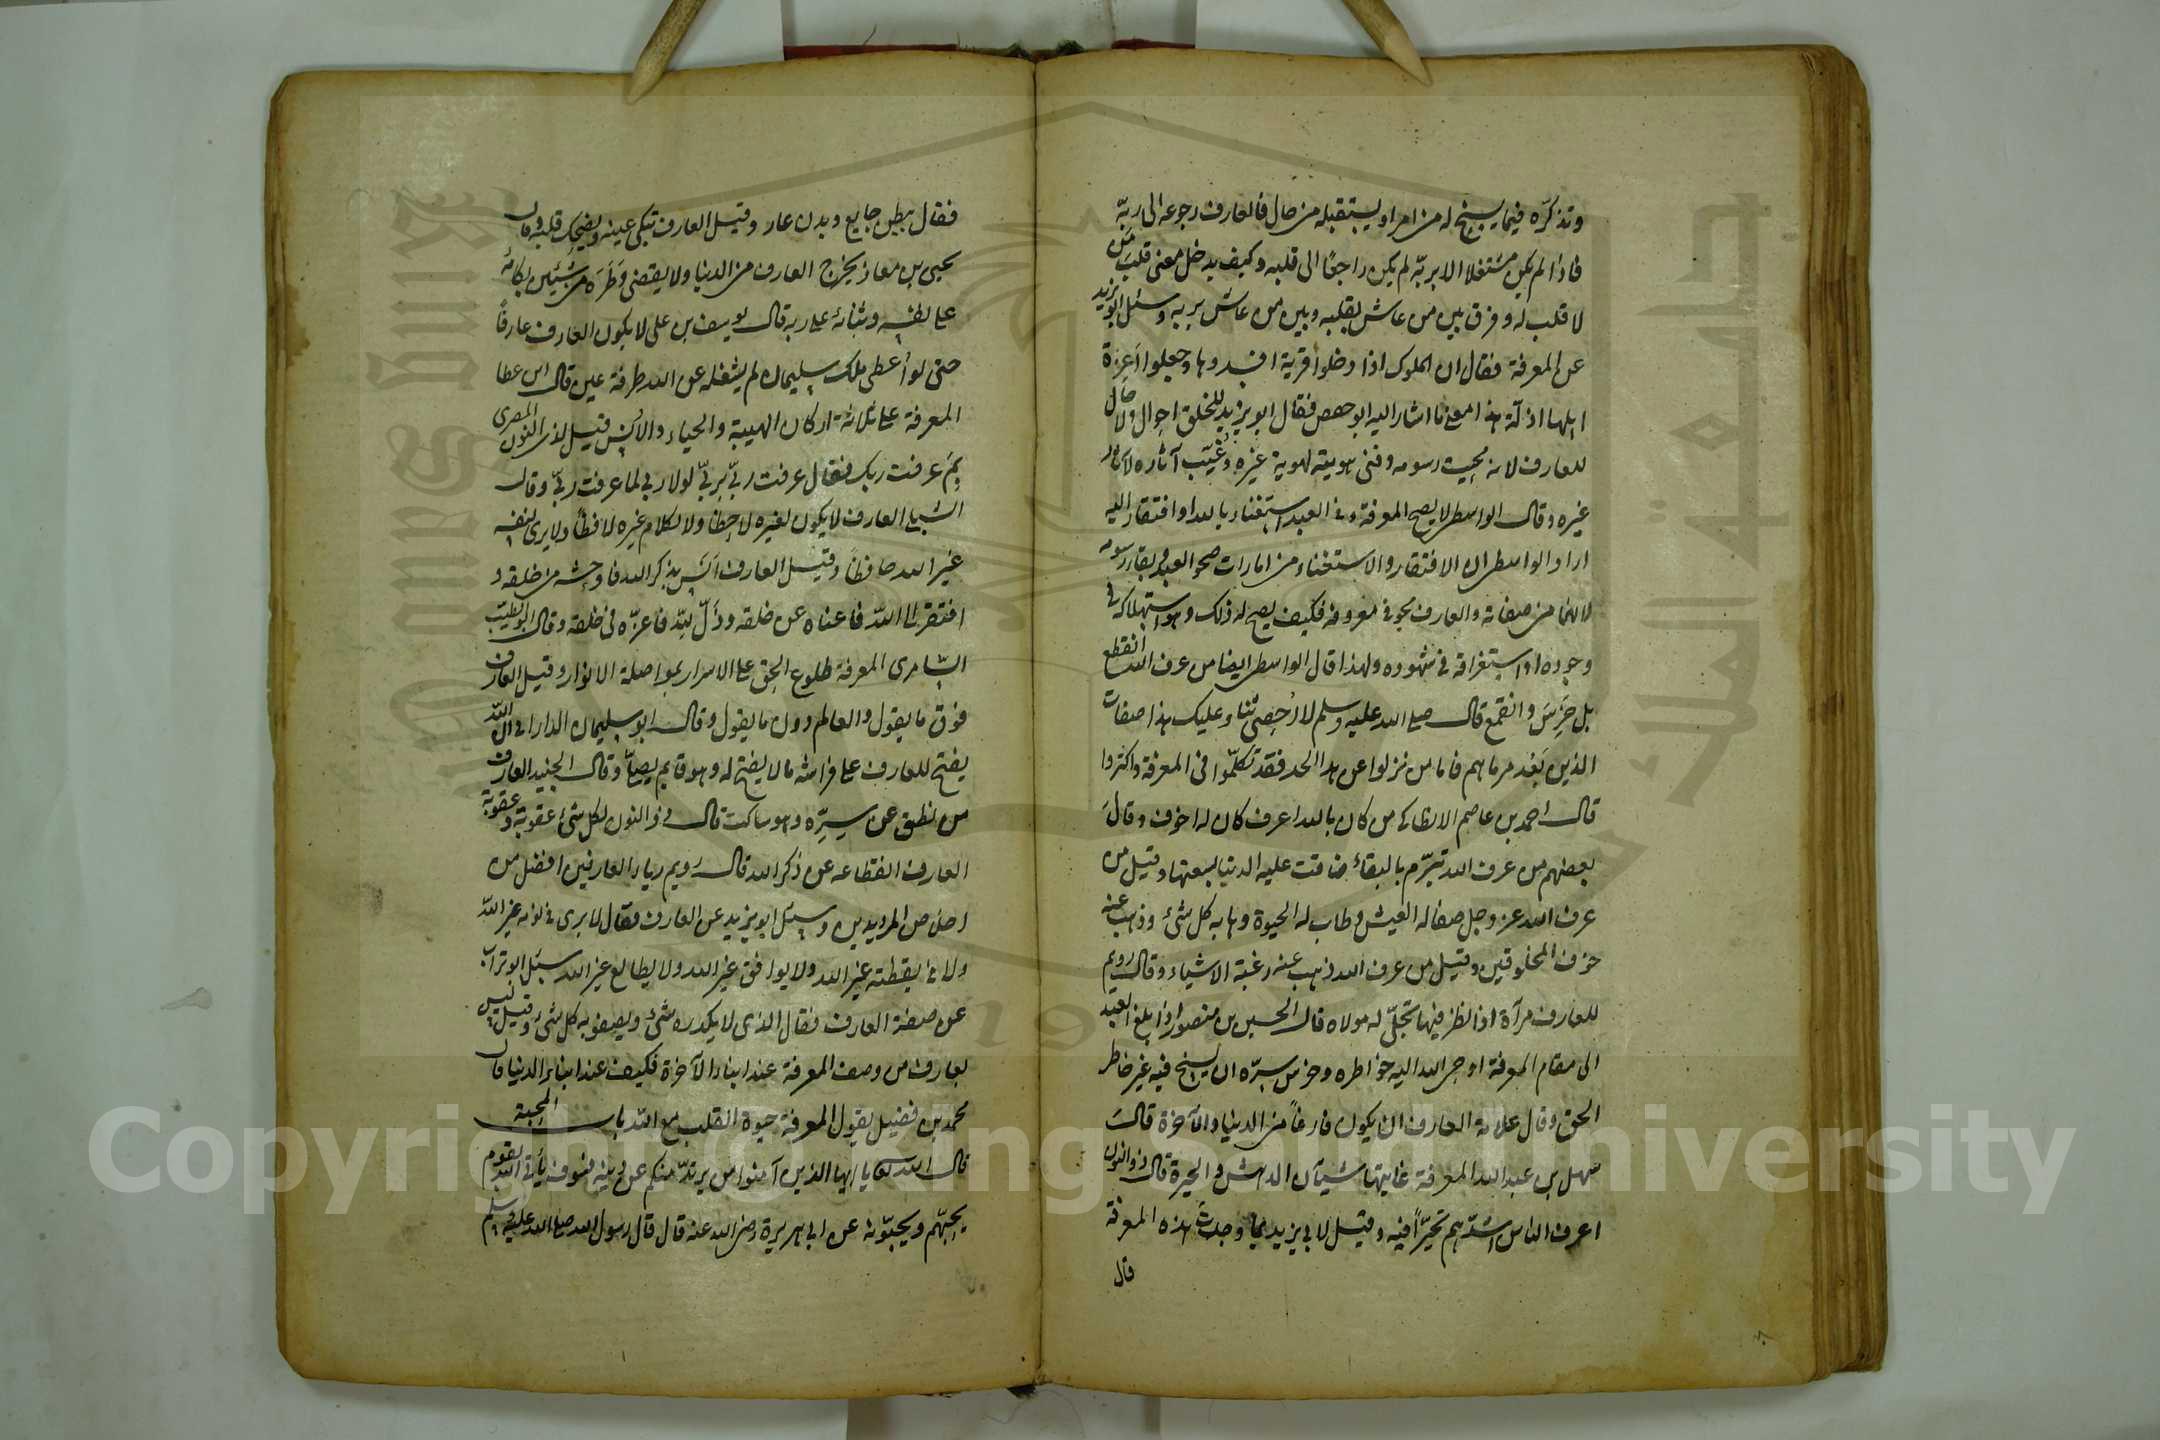 وتذكّره فيما يسنح له من امر او يستقبله من حال فالعارف رجوعه الى ربّه
فاذا لم يكن مشتغلا الا بربّه لم يكن راجعًا الى قلبه وكيف يدخل معنى قلبَ مَن
لا قلب له وفرق بين من عاش بقلبه وبين من عاش بربه وسئل ابو يزيد
عن المعرفة فقال ان الملوك اذا دخلوا قرية افسدوها وجعلوا اَعِزة
اهلها اذلّة هذا معنى ما اشار اليه ابو حفص فقال ابو يزيد للخلق احوال ولا حال
للعارف لانه محيت رسومه وفنى هويته لهوية غيره وغُيّب آثاره لآثار
غيره وقال الواسطى لا يصح المعرفة وفى العبد استغناء بالله او افتقار اليه
اراد الواسطى ان الافتقار والاستغناء من امارات صحو العبد وبقاء رسومه
لانهما من صفاته والعارف محو فى معروفه فكيف يصح له ذلك وهو استهلاكه فى
وجوده او استغراقه فى شهوده ولهذا قال الواسطى ايضا من عرف الله انقطع
بل خَرِسَ وانقمع قال صلى الله عليه وسلم لا اُحصى ثناء عليك هذا صفات
الذين بَعُد مرماهم فاما من نزلوا عن هذا الحد فقد تكلّموا فى المعرفة واكثروا
قال احمد بن عاصم الانطاكى من كان بالله اعرف كان له اخوف وقالَ
بعضهم من عرف الله تبرّم بالبقاء ضاقت عليه الدنيا بسعتها وقيل من
عرف الله عز وجل صفا له العيش وطاب له الحيوة وهابه كل شئ وذهب عنه
خوف المخلوقين وقيل من عرف الله ذهب عنه رغبة الاشياء وقال رويم
للعارف مرآة اذا نظر فيها تجلّى له مولاه قال الحسين بن منصور اذا بلغ العبد
الى مقام المعرفة اوحى الله اليه خواطره وحرس سرّه ان يسنح فيه غير خاطر
الحق وقال علامة العارف ان يكون فارغاً من الدنيا والآخرة قالَ
سهل بن عبد الله المعرفة غايتها شيآن الدهش والحيرة قال ذو النون
اعرف الناس اشدّهم تحيّراً فيه وقيل لابى يزيد بما وجدتَ هذه المعرفة
قال
فقال ببطن جايع وبدن عار وقيل العارف تبكى عينه ويضحك قلبه وقال
يحيى بن معاذ يخرج العارف من الدنيا ولا يقضى وَطَرَه من شيئين بكائه
على نفسه وثنائه على ربه قال يوسف بن على لا يكون العارف عارفاً
حتى لو اُعطى ملك سليمان لم يشغله عن الله طرفة عين قال ابن عطا
المعرفة على ثلاثة اركان الهيبة والحياء والانس قيل لذى النون المصرى
بِمَ عرفت ربك فقال عرفت ربّى بربّى لولا ربى لما عرفت ربّى وقال
الشبلى العارف لا يكون لغيره لاحظا ولا لكلام غيره لافظاً ولا يرى لنفسه
غير الله حافظاً وقيل العارف اَنَسَ بذكر الله فاوحشه من خلقه و
افتقر الى الله فاغناه عن خلقه وذلّ لله فاعزّه فى خلقه وقال ابو الطيّب
السّامرى المعرفة طلوع الحق على الاسرار بمواصلة الانوار وقيل العارف
فوق ما يقول والعالم دون ما يقول وقال ابو سليمان الدارانى ان الله
يفتح للعارف على فراشه ما لا يفتح له وهو قايم يصلّى وقال الجنيد العارف
من نطق عن سِرِّه وهو ساكت قال ذو النون لكل شئ عقوبة وعقوبة
العارف انقطاعه عن ذكر الله قال رويم رياء العارفين افضل من
اخلاص المريدين وسئل ابو يزيد عن العارف فقال لا يرى فى نومه غير الله
ولا فى يقظته غير الله ولا يوافق غير الله ولا يطالع غير الله سئل ابو تراب
عن صفة العارف فقال الذى لا يكدره شئ ويصفو به كل شئ وقيل ليس
بعارف من وصف المعرفة عند ابناء الآخرة فكيف عند ابناء الدنيا قال
محمد بن فضيل يقول المعرفة حيوة القلب مع الله باب المحبة
قال الله تعالى يا ايها الذين آمنوا من يرتدّ منكم عن دينه فسوف يأتى الله بقوم
يحبّهم ويحبّونه عن ابى هريرة رضى الله عنه قال قال رسول الله صلى الله عليه وسلم
Copyright © King Saud University